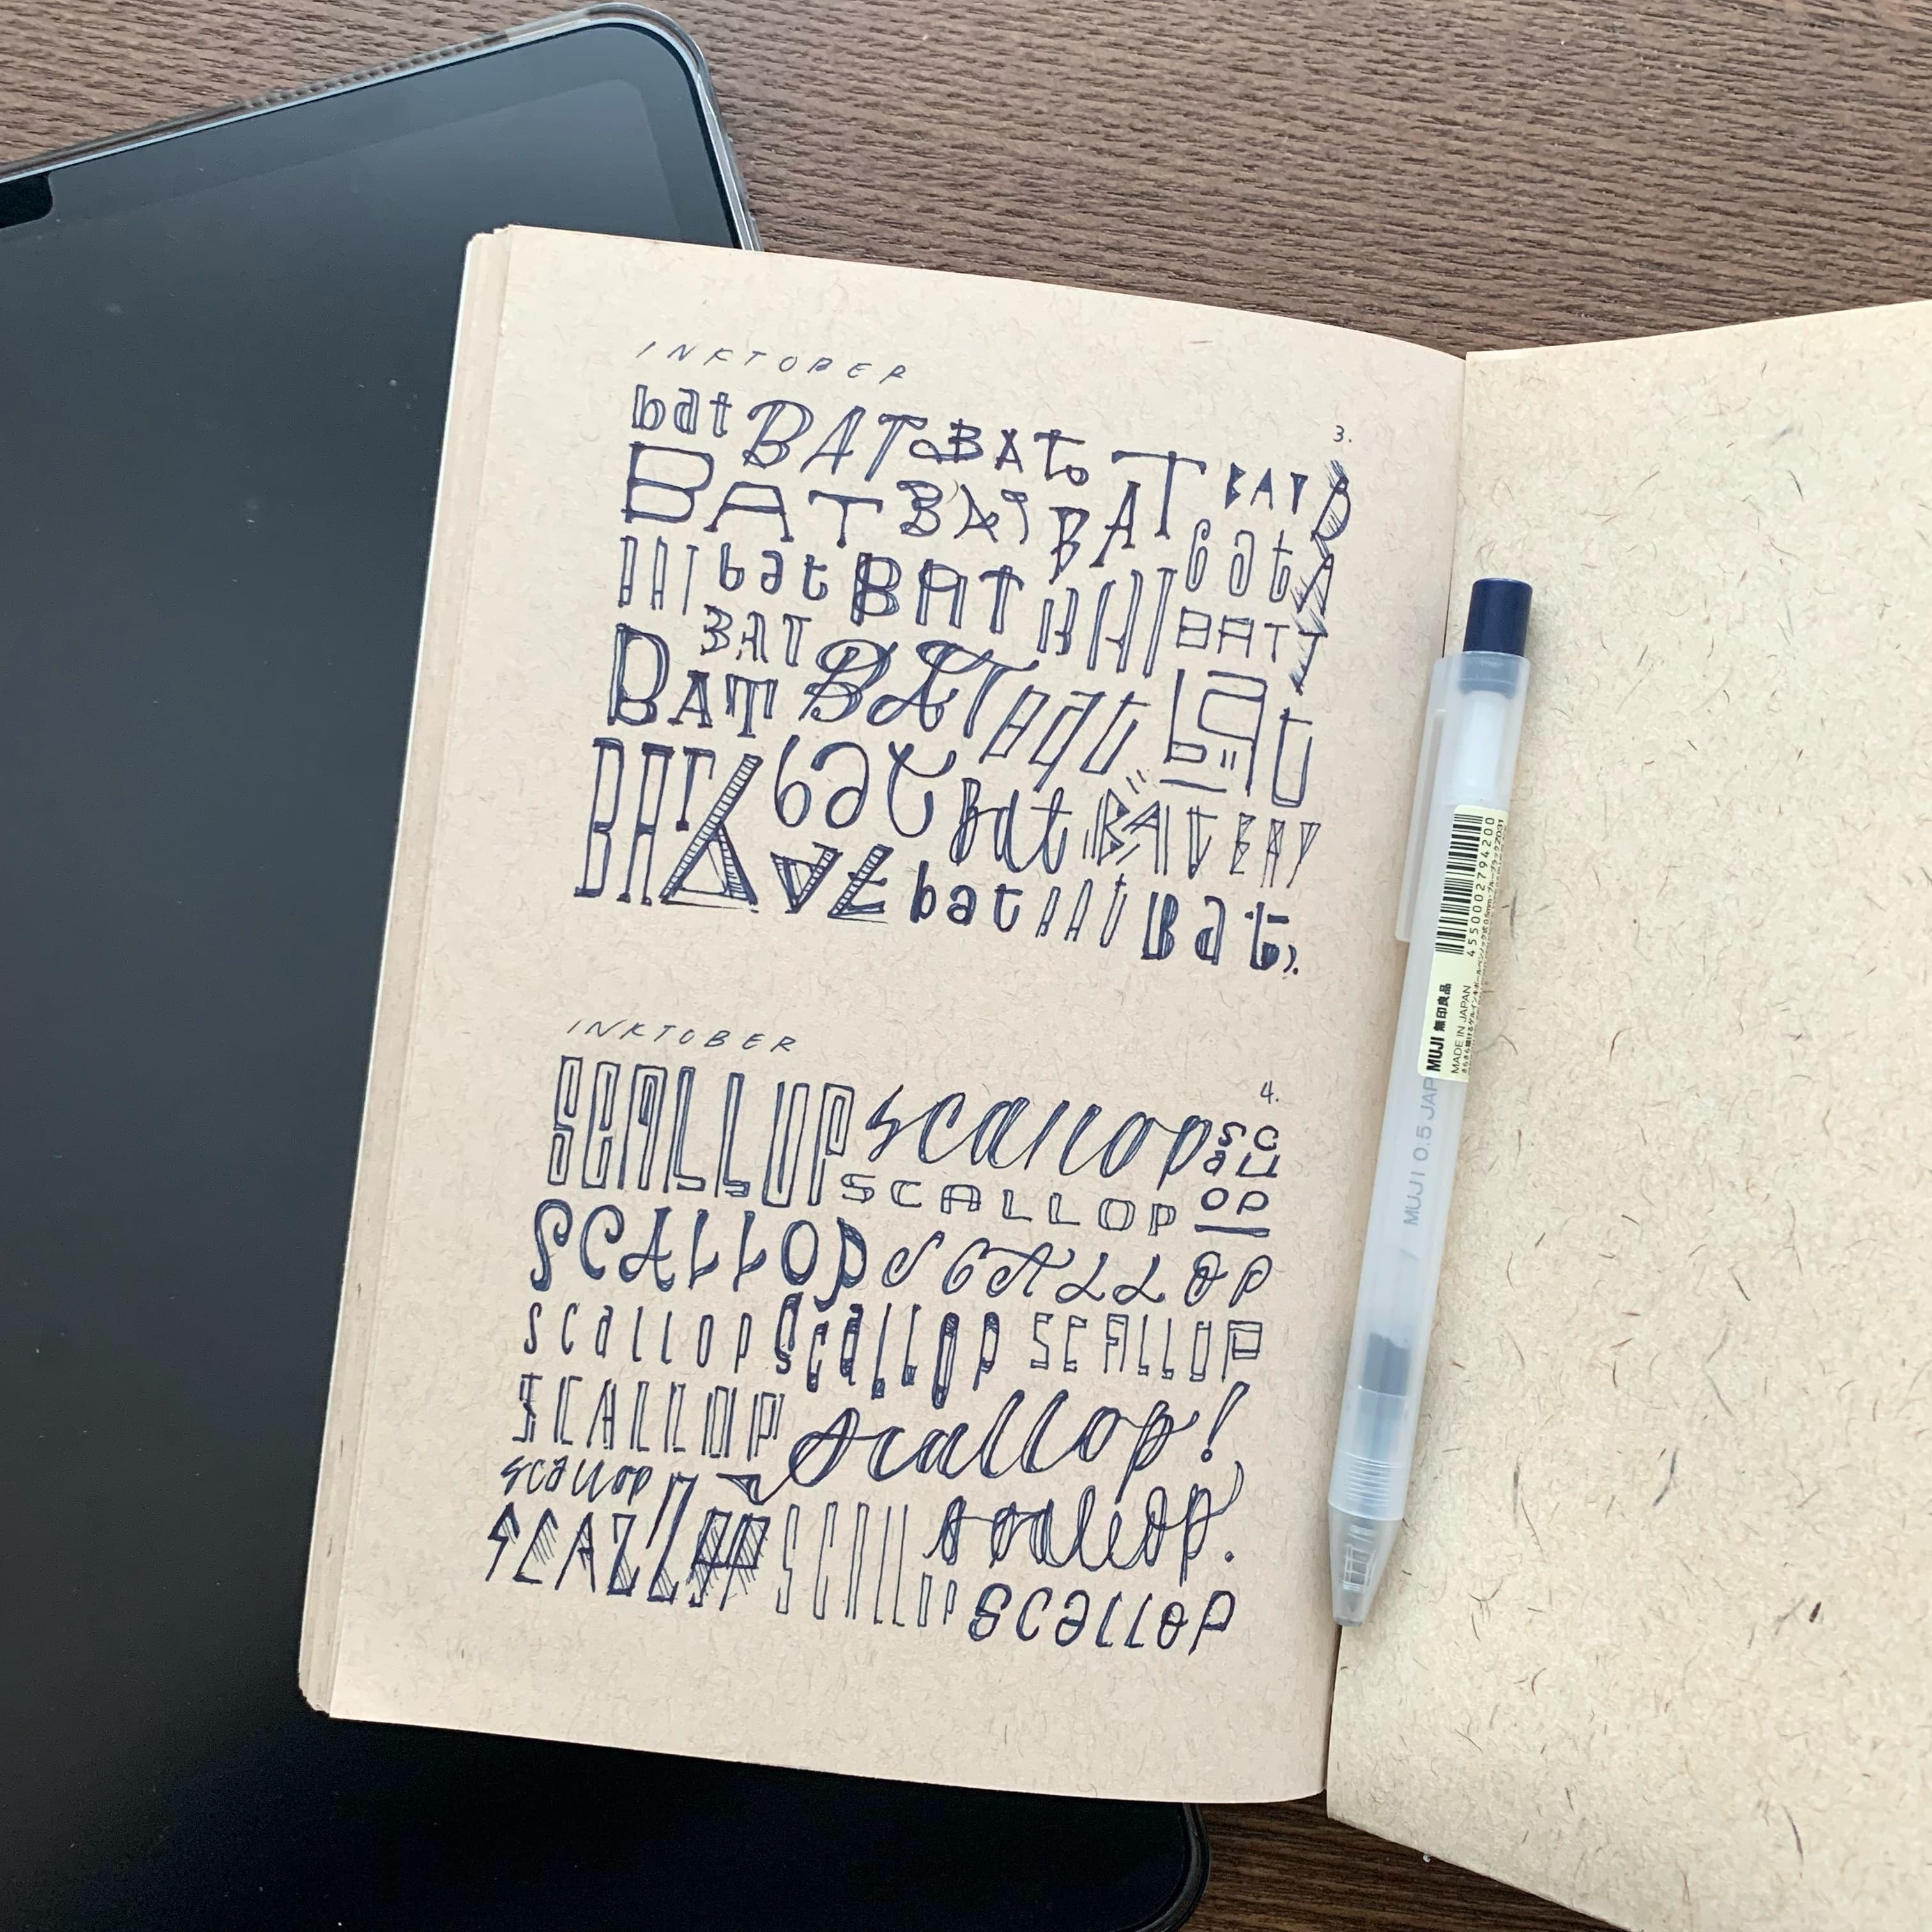 INKTOBER
3.
bat BAT BAT BAT BAT
BAT BAT BAT bat
BAT bat BAT BAT BAT
BAT BAT
BAT BAT bat bat
BAT bat Bat BAT BAT
BAT bat BAT Bat
INKTOBER
4.
SCALLOP scallop scallop
SCALLOP
SCALLOP SCALLOP
scallop scallop SCALLOP
SCALLOP scallop!
scallop
SCALLOP SCALLOP scallop.
scallop
4550002794200
MUJI 無印良品
MADE IN JAPAN
MUJI 0.5 JAP